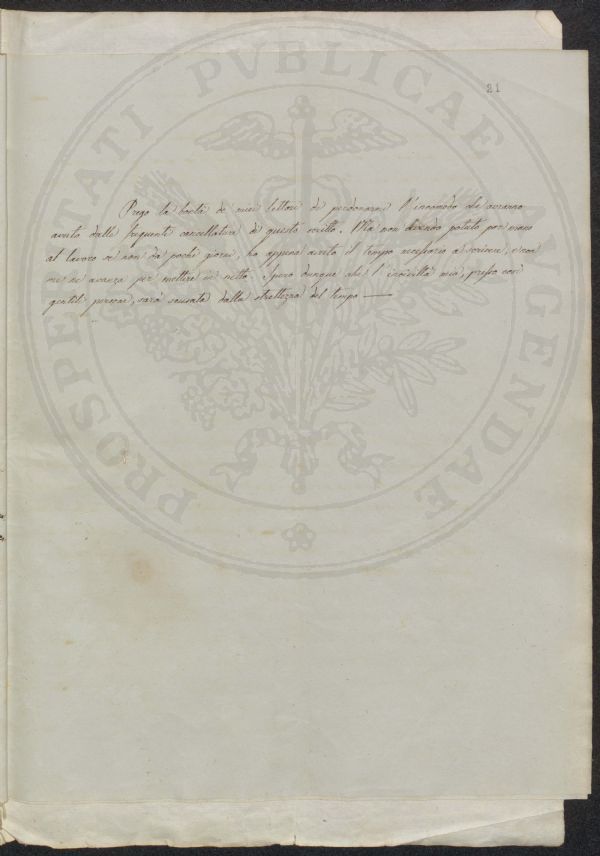 PROSPERITATI PVBLICAE AVGENDAE
21
Prego la bontà de' miei lettori di perdonarmi l'incomodo che avranno
avuto dalle frequenti cancellature di questo scritto. Ma non avendo potuto por mano
al lavoro se non da pochi giorni, ho appena avuto il tempo necessario a scrivere, e non
me ne avanza per mettere in netto. Spero dunque che l'inciviltà mia, presso così
gentili persone, sarà scusata dalla strettezza del tempo —